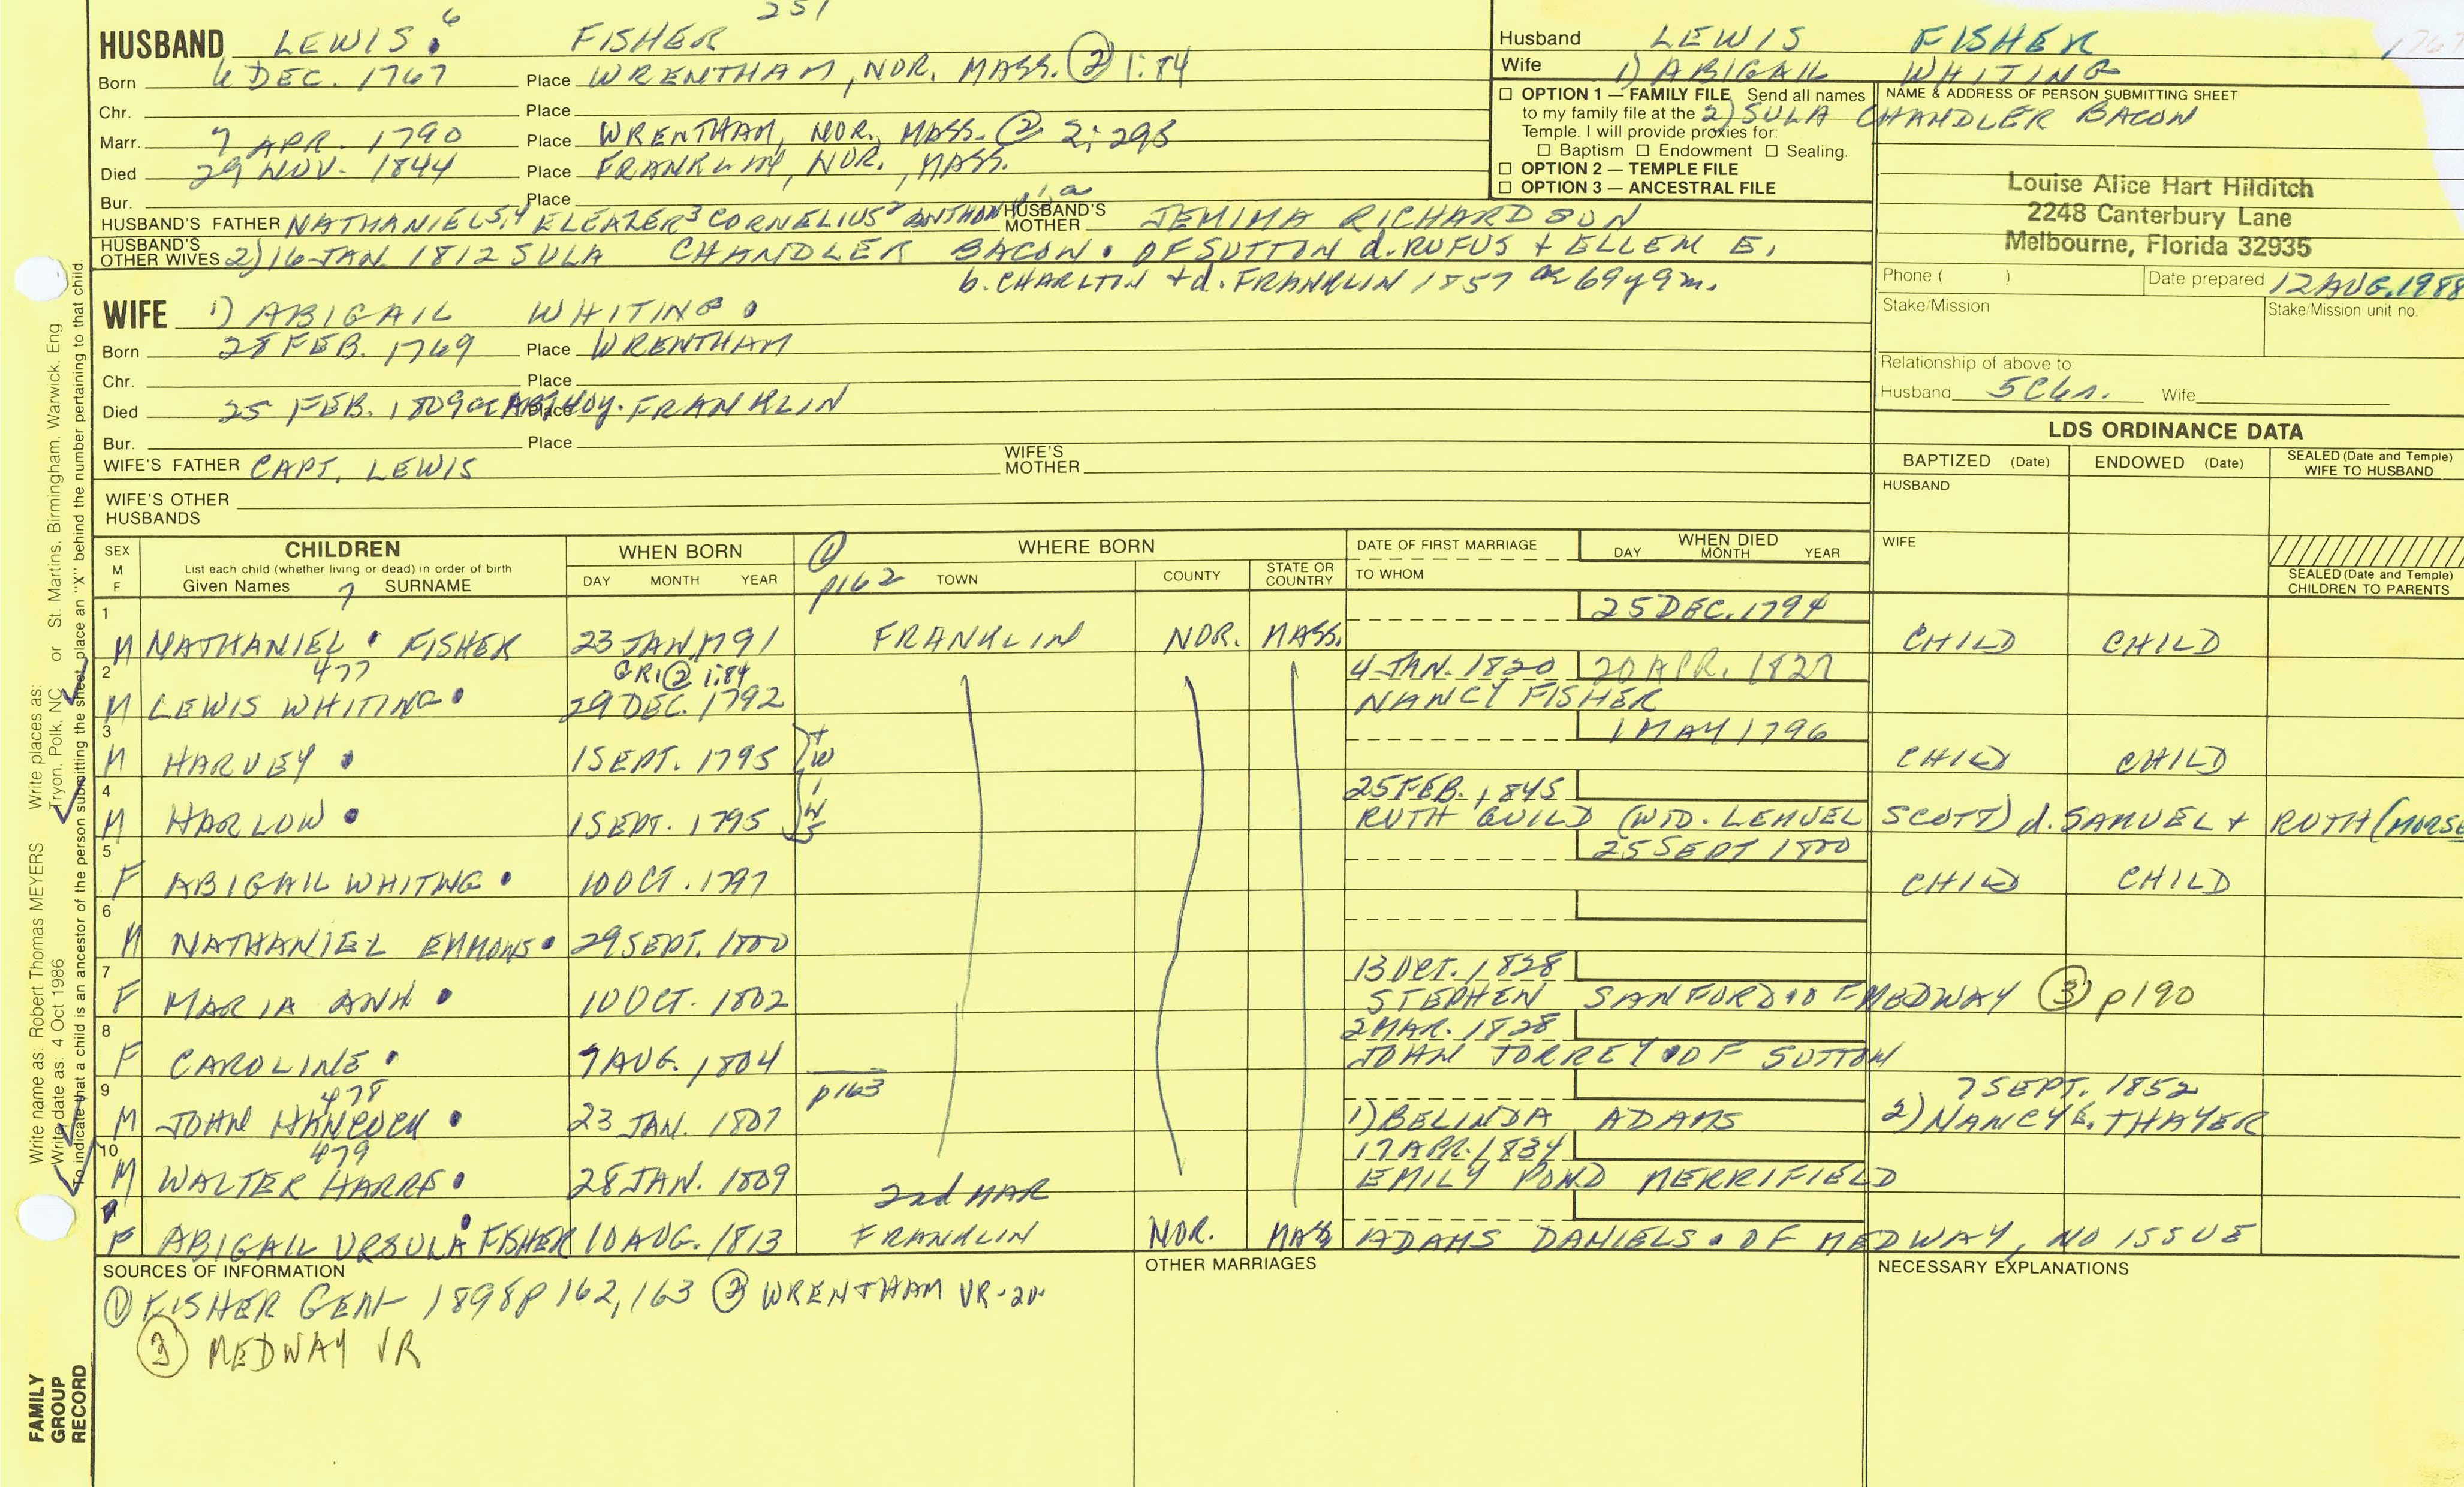 251
HUSBAND LEWIS 6 FISHER
Born 6 DEC. 1767 Place WRENTHAM, NOR. MASS. ② 1:84
Chr. Place
Marr. 7 APR. 1790 Place WRENTHAM, NOR., MASS. ② 2:298
Died 29 NOV. 1844 Place FRANKLIN, NOR., MASS.
Bur. Place
HUSBAND'S FATHER NATHANIEL 5,4 ELEAZER 3 CORNELIUS 2 ANTHONY 1,a HUSBAND'S MOTHER JEMIMA RICHARDSON
HUSBAND'S OTHER WIVES 2) 16 JAN. 1812 SULA CHANDLER BACON. OF SUTTON d. RUFUS + ELLEM E.
b. CHARLTON + d. FRANKLIN 1857 ae 69y9m.
WIFE 1) ABIGAIL WHITING
Born 28 FEB. 1769 Place WRENTHAM
Chr. Place
Died 25 FEB. 1809 Place FRANKLIN
Bur. Place
WIFE'S FATHER CAPT. LEWIS WIFE'S MOTHER
WIFE'S OTHER HUSBANDS
Husband LEWIS FISHER 1767
Wife 1) ABIGAIL WHITING
2) SULA CHANDLER BACON
☐ OPTION 1 — FAMILY FILE Send all names
to my family file at the
Temple. I will provide proxies for:
☐ Baptism ☐ Endowment ☐ Sealing.
☐ OPTION 2 — TEMPLE FILE
☐ OPTION 3 — ANCESTRAL FILE
NAME & ADDRESS OF PERSON SUBMITTING SHEET
Louise Alice Hart Hilditch
2248 Canterbury Lane
Melbourne, Florida 32935
Phone ( ) Date prepared 12 AUG. 1988
Stake/Mission Stake/Mission unit no.
Relationship of above to:
Husband 5C6r. Wife
LDS ORDINANCE DATA
BAPTIZED (Date) ENDOWED (Date) SEALED (Date and Temple) WIFE TO HUSBAND
HUSBAND
WIFE
SEALED (Date and Temple) CHILDREN TO PARENTS
SEX M F
CHILDREN
List each child (whether living or dead) in order of birth
Given Names 7 SURNAME
WHEN BORN
DAY MONTH YEAR
① p162
WHERE BORN
TOWN COUNTY STATE OR COUNTRY
DATE OF FIRST MARRIAGE
TO WHOM
WHEN DIED
DAY MONTH YEAR
1 25 DEC. 1794
M NATHANIEL FISHER 23 JAN. 1791 FRANKLIN NOR. MASS. CHILD CHILD
2 477 GR1 ② 1:84 4 JAN. 1820 20 APR. 1827
M LEWIS WHITING 29 DEC. 1792 NANCY FISHER
3 1 MAY 1796
M HARVEY 1 SEPT. 1795 CHILD CHILD
TWINS
4 25 FEB. 1845
M HARLOW 1 SEPT. 1795 RUTH GUILD (WID. LEMUEL SCOTT) d. SAMUEL + RUTH (MORSE
5 25 SEPT 1800
F ABIGAIL WHITNG 10 OCT. 1797 CHILD CHILD
6
M NATHANIEL EMMONS 29 SEPT. 1800
7 13 OCT. 1828
F MARIA ANN 10 OCT. 1802 STEPHEN SANFORD OF MEDWAY ③ p190
8 2 MAR. 1828
F CAROLINE 7 AUG. 1804 JOHN TORREY OF SUTTON
9 478 p163 7 SEPT. 1852
M JOHN HANCOCK 23 JAN. 1807 1) BELINDA ADAMS 2) NANCY E. THAYER
10 479 17 APR. 1834
M WALTER HARRS 28 JAN. 1809 EMILY POND MERRIFIELD
2nd MAR
F ABIGAIL URSULA FISHER 10 AUG. 1813 FRANKLIN NOR. MASS ADAMS DANIELS. OF MEDWAY, NO ISSUE
SOURCES OF INFORMATION
① FISHER GENT 1898 p 162, 163 ② WRENTHAM VR. 2v.
③ MEDWAY VR
OTHER MARRIAGES
NECESSARY EXPLANATIONS
Write name as: Robert Thomas MEYERS Write places as:
Write date as: 4 Oct 1986 Tryon, Polk, NC or St. Martins, Birmingham, Warwick, Eng.
To indicate that a child is an ancestor of the person submitting the sheet, place an "X" behind the number pertaining to that child.
FAMILY
GROUP
RECORD